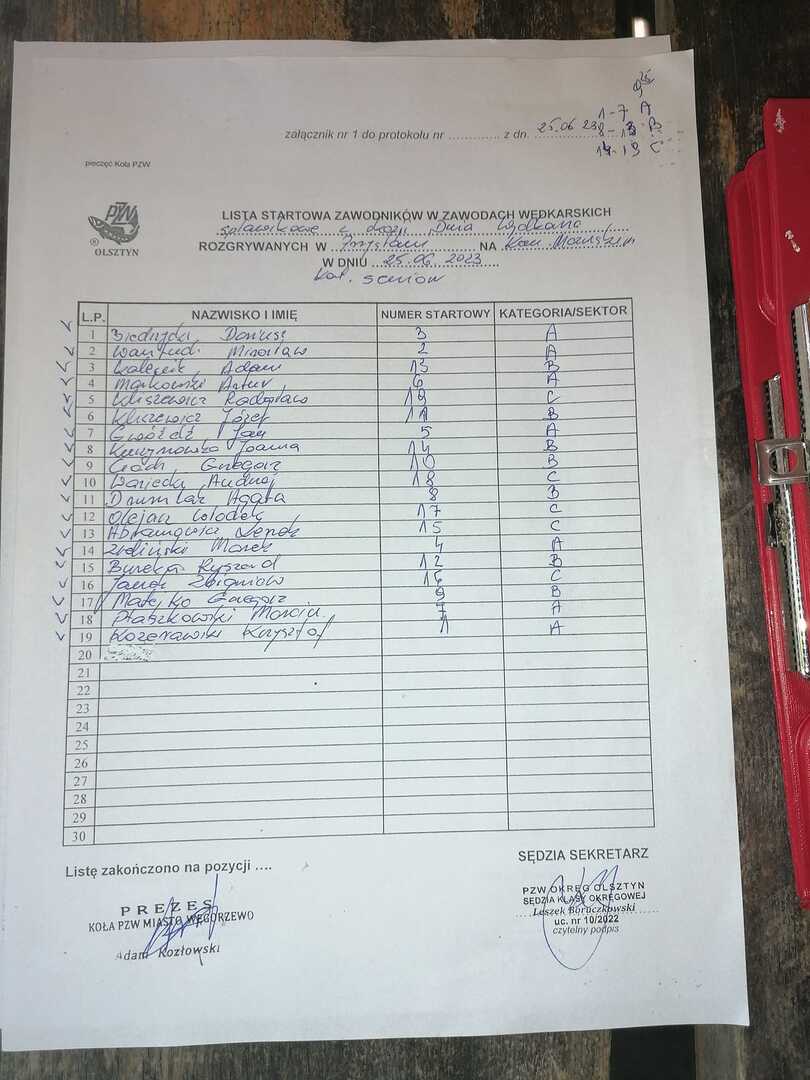 1-7 A
załącznik nr 1 do protokołu nr ............. z dn. 25.06 23 8-13 B
14-19 C
pieczęć Koła PZW
PZW
® OLSZTYN
LISTA STARTOWA ZAWODNIKÓW W ZAWODACH WĘDKARSKICH
spławikowe z okazji Dnia Wędkarza
ROZGRYWANYCH W Przystani NA
W DNIU 25.06.2023
kat. senior
L.P. NAZWISKO I IMIĘ NUMER STARTOWY KATEGORIA/SEKTOR
1 Dariusz 3 A
2 Mirosław 2 A
3 Adam 13 B
4 Markowski Artur 6 A
5 Kliszewicz Radosław 19 C
6 Józef 11 B
7 Gwóźdź Jan 5 A
8 Joanna 14 B
9 Grzegorz 10 B
10 Andrzej 18 C
11 Agata 8 B
12 Olejarz Włodek 17 C
13 Leszek 15 C
14 Zieliński Marek 4 A
15 Ryszard 12 B
16 Janek Zbigniew 16 C
17 Matejko Grzegorz 9 B
18 Ptaszkowski Marcin 7 A
19 Krzysztof 1 A
20
21
22
23
24
25
26
27
28
29
30
Listę zakończono na pozycji ....
SĘDZIA SEKRETARZ
PREZES
KOŁA PZW MIASTO WĘGORZEWO
Adam Kozłowski
PZW OKRĘG OLSZTYN
SĘDZIA KLASY OKRĘGOWEJ
Leszek Boruczkowski
uc. nr 10/2022
czytelny podpis